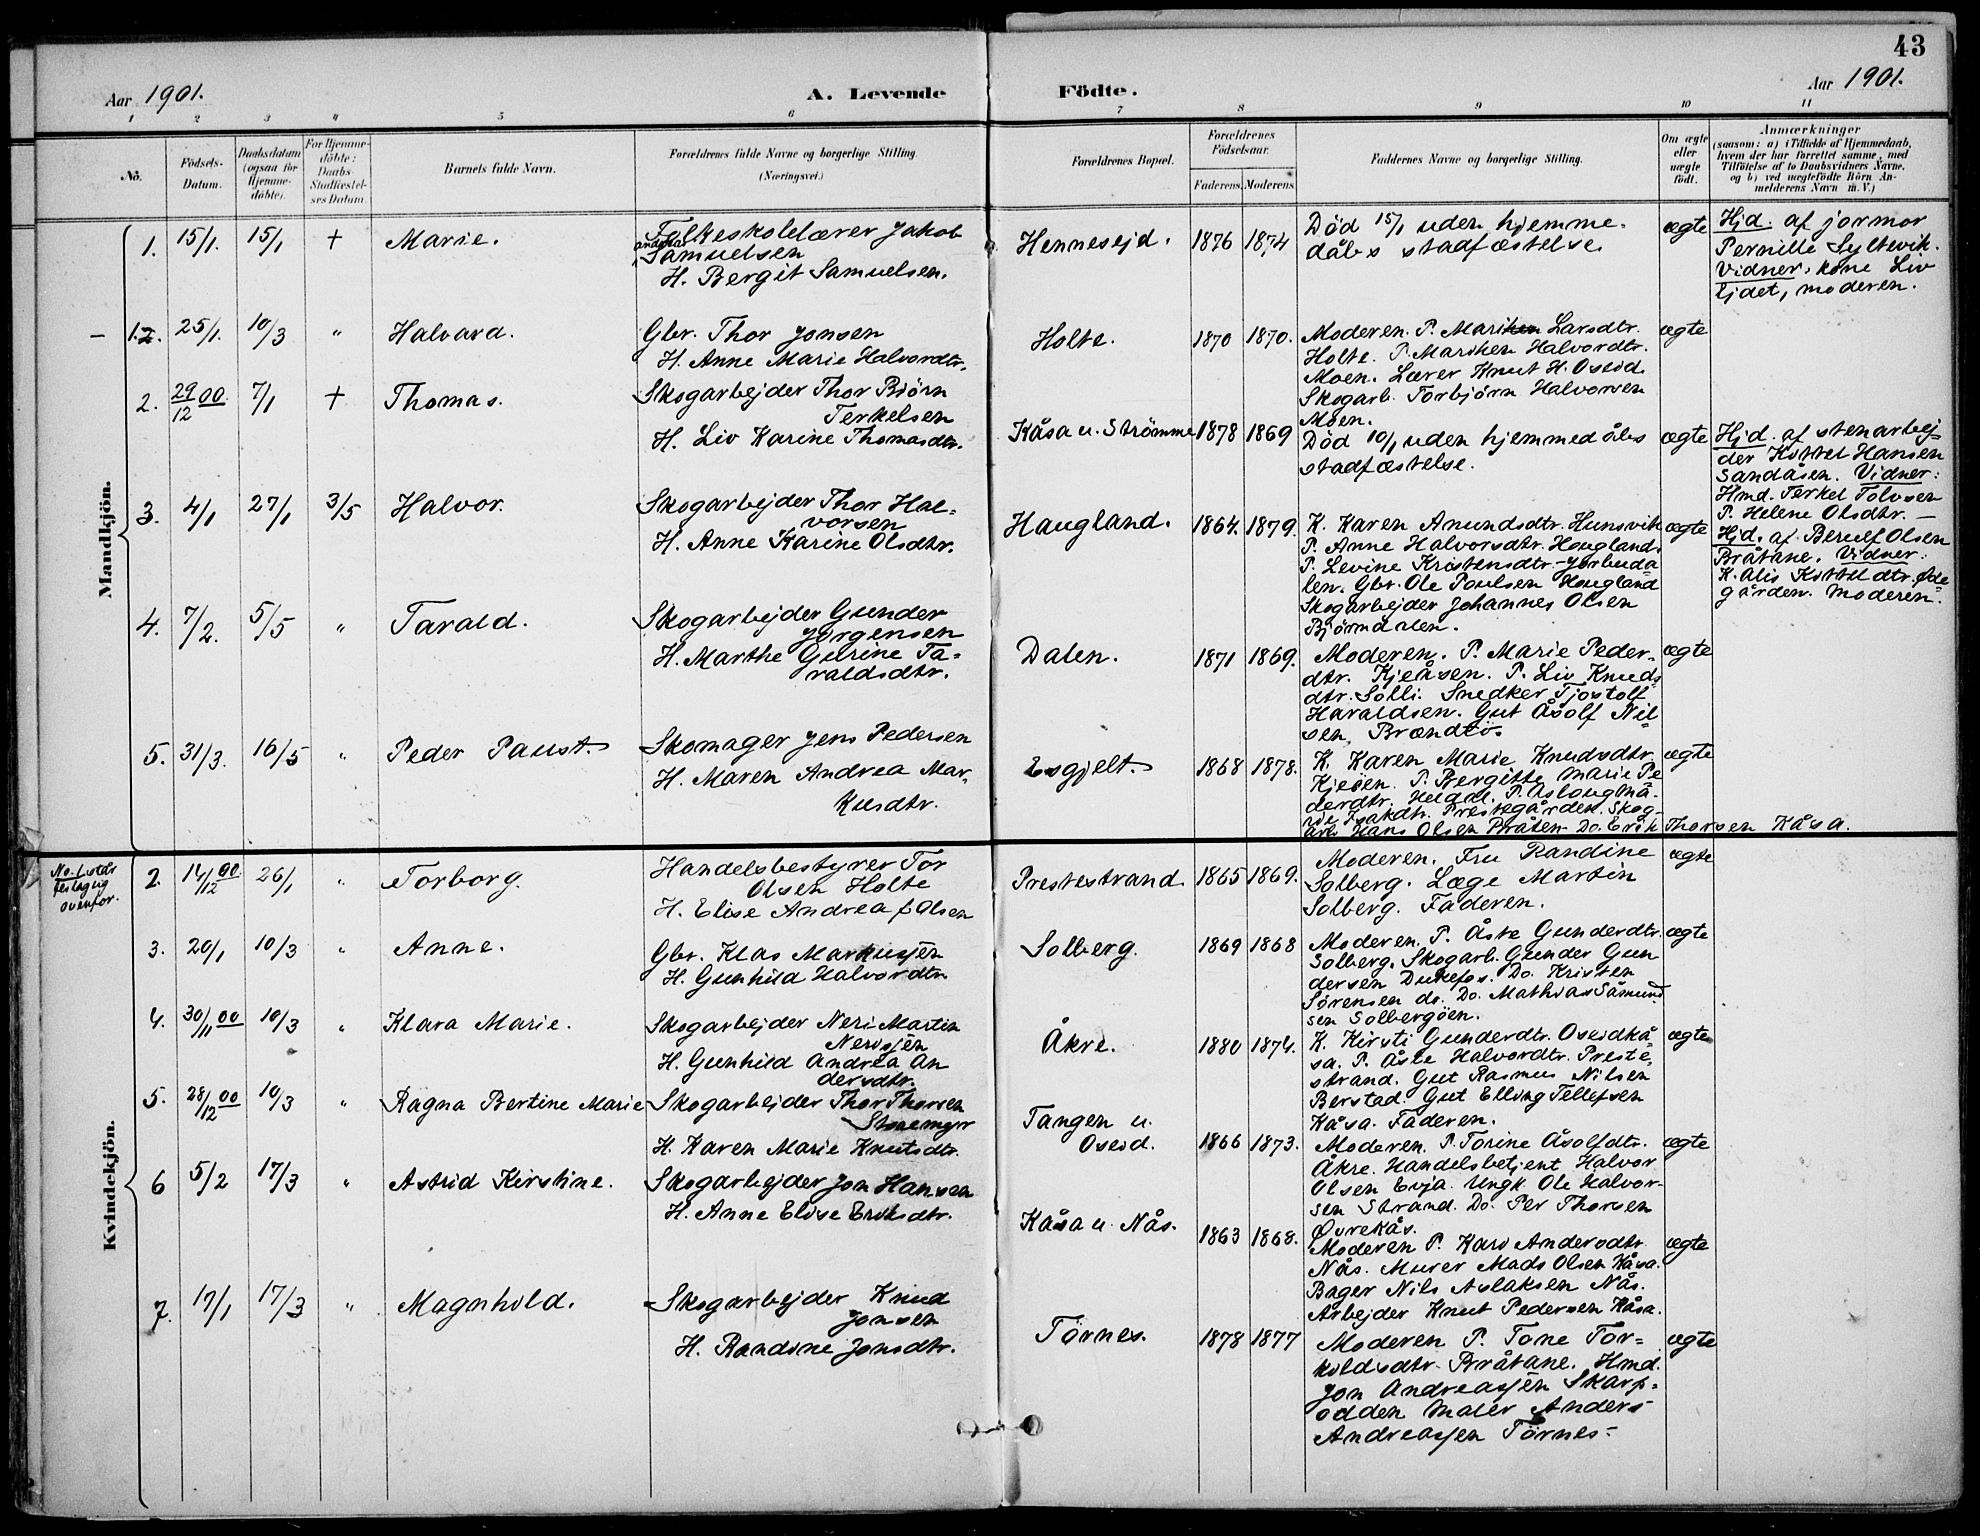 43
Aar 1901. A. Levende Födte. Aar 1901.
1 2 3 4 5 6 7 8 9 10 11
No. Födsels-Datum. Daabsdatum (ogsaa for Hjemmedöbte). For Hjemmedöbte: Daabs-Stadfæstelses Datum. Barnets fulde Navn. Forældrenes fulde Navne og borgerlige Stilling. (Næringsvei.) Forældrenes Bopæl. Forældrenes Födselsaar. Faderens. Moderens. Faddernes Navne og borgerlige Stilling. Om ægte eller uægte födt. Anmærkninger (saasom: a) i Tilfælde af Hjemmedaab, hvem der har forrettet samme, med Tilföielse af to Daabsvidners Navne, og b) ved uægtefödte Börn Anmelderens Navn m. V.)
Mandkjön.
1. 15/1. 15/1 + Marie.
Folkeskolelærer Jakob
Andreas
Samuelsen
H. Bergit Samuelsen.
Hennesejd. 1876 1874
Død 15/1 uden hjemme-
dåbs stadfæstelse
ægte
Hjd. af jormor
Pernille Syltevik.
Vidner: kone Liv
Ejdet, moderen.
1. 2. 25/1. 10/3 " Halvard.
Gbr. Thor Jonsen
H. Anne Marie Halvordtr.
Holte. 1870 1870.
Moderen. P. Mariken Larsdtr.
Holte. P. Mariken Halvordtr.
Moen. Lærer Knut H. Oseid.
Skogarb. Torbjörn Halvorsen
Moen.
ægte
2. 29/12 00. 7/1 + Thomas.
Skogarbejder Thor Björn
Terkelsen
H. Liv Karine Thomasdtr.
Kåsa u. Strømme 1878 1869
Død 10/1 uden hjemmedåbs
stadfæstelse.
ægte
Hjd. af stenarbej-
der Kittel Hansen
Sandåsen. Vidner:
Hmd. Terkel Tolvsen
P. Helene Olsdtr. —
3. 4/1 27/1 3/5 Halvor.
Skogarbejder Thor Hal-
vorsen
H. Anne Karine Olsdtr.
Haugland. 1864. 1879.
K. Karen Amundsdtr. Hunsvik
P. Anne Halvorsdtr. Hougland.
P. Levine Kristensdtr. Jorbuda-
len. Gbr. Ole Poulsen Hougland
Skogarbejder Johannes Olsen
Björndalen.
ægte
Hjd. af Berulf Olsen
Bråtane. Vidner:
K. Alis Kitteldtr. Øde
gården. Moderen.
4. 7/2. 5/5 " Tarald.
Skogarbejder Gunder
Jörgensen
H. Marthe Gurine Ta-
raldsdtr.
Dalen. 1871 1869.
Moderen. P. Marie Peder-
dtr. Kjeåsen. P. Liv Knuds
dtr. Solli. Snedker Tjostolf
Haraldsen. Gut Åsolf Nil
sen, Brændto
ægte
5. 31/3. 16/5 " Peder Paust.
Skomager Jens Pedersen
H. Maren Andrea Mar-
kusdtr.
Esgjelt. 1868 1878.
K. Karen Marie Knudsdtr.
Kjeåsen. P. Bergitte Marie Pe
derdtr. Heldal. P. Aslaug Ma-
rie Isakdtr. Prestegården. Skog-
arb. Hans Olsen Bråten. Do. Erik Thorsen Kåsa.
ægte
Kvindekjön.
No. 1 står
fejlagtig
ovenfor.
2. 14/12 00. 26/1 " Torborg.
Handelsbestyrer Tor
Olsen Holte
H. Elise Andrea f. Olsen
Prestestrand 1865 1869.
Moderen. Fru Randine
Solberg. Læge Martin
Solberg. Faderen.
ægte
3. 20/1 10/3 " Anne.
Gbr. Klas Markussen
H. Gunhild Halvordtr.
Solberg. 1869 1868
Moderen. P. Åste Gunderdtr.
Solberg. Skogarb. Gunder Gun
dersen Dukefos. Do. Kristen
Sørensen do. Do. Mathias Såmund
sen Solbergöen.
ægte
4. 30/11 00 10/3 " Klara Marie.
Skogarbejder Neri Martin
Nerisjen
H. Gunhild Andrea An
dersdtr.
Åkre. 1880 1874.
K. Kirsti Gunderdtr. Oseidkå-
sa. P. Åste Halvordtr. Preste-
strand. Gut Rasmus Nilsen
Berstad. Gut Elling Tellefsen
Kåsa. Faderen.
ægte
5. 28/12 00 10/3 " Ragna Bertine Marie
Skogarbejder Thor Thorsen
Stuemyr
H. Karen Marie Knutsdtr.
Tangen u.
Oseid. 1866 1873.
Moderen. P. Torine Åsolfdtr.
Åkre. Handelsbetjent Halvor
Olsen Evja. Ungk. Ole Halvor-
sen Strand. Do. Per Thorsen
Øvrekås.
ægte
6 5/2 17/3 " Astrid Kirstine.
Skogarbejder Jon Hansen
H. Anne Elise Eriksdtr.
Kåsa u. Nås. 1863 1868.
Moderen P. Kari Andersdtr.
Nås. Murer Mads Olsen Kåsa.
Bager Nils Aslaksen Nås.
Arbejder Knut Pedersen Kåsa.
ægte
7. 17/1 17/3 " Magnhild.
Skogarbejder Knud
Jonsen
H. Randine Jonsdtr.
Törnes. 1878 1877
Moderen P. Tone Tor-
kildsdtr. Bråtane. Hmd.
Jon Andreasjen Skarp-
odden Maler Anders
Andreasjen Törnes.
ægte